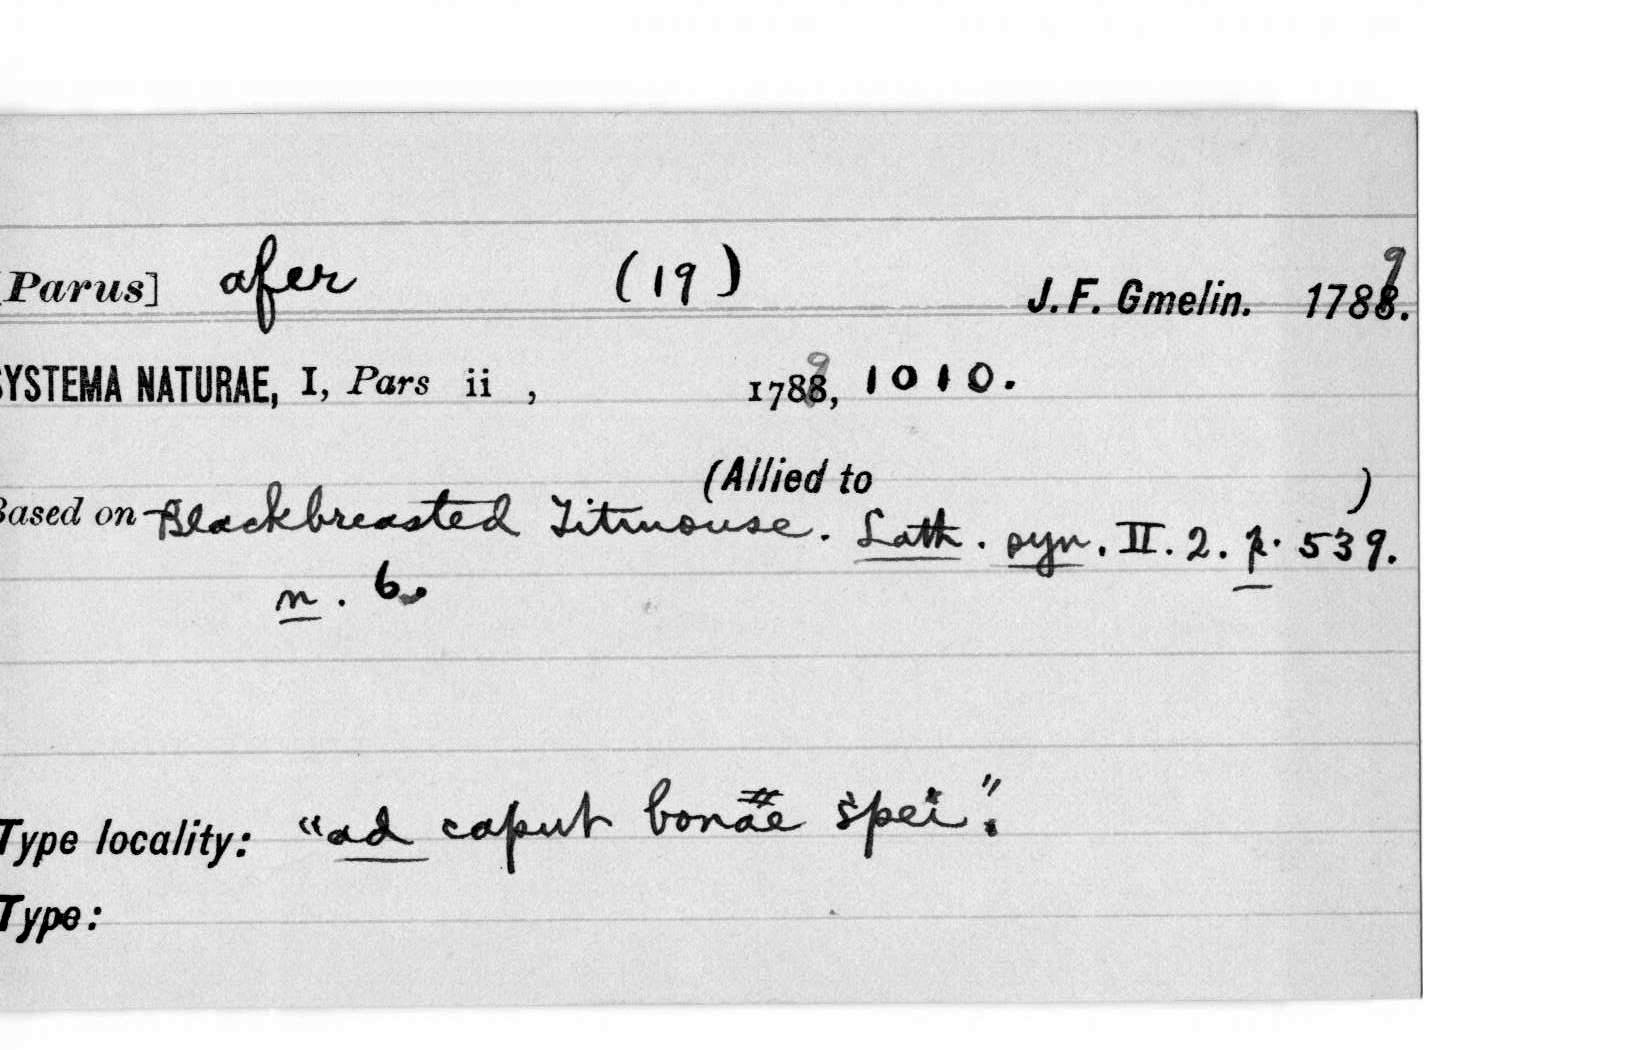 [Parus] afer (19) J. F. Gmelin. 1789.
SYSTEMA NATURAE, I, Pars ii , 1789, 1010.
(Allied to )
Based on Blackbreasted Titmouse. Lath. syn. II. 2. p. 539.
n. 6.
Type locality: "ad caput bonae spei".
Type: